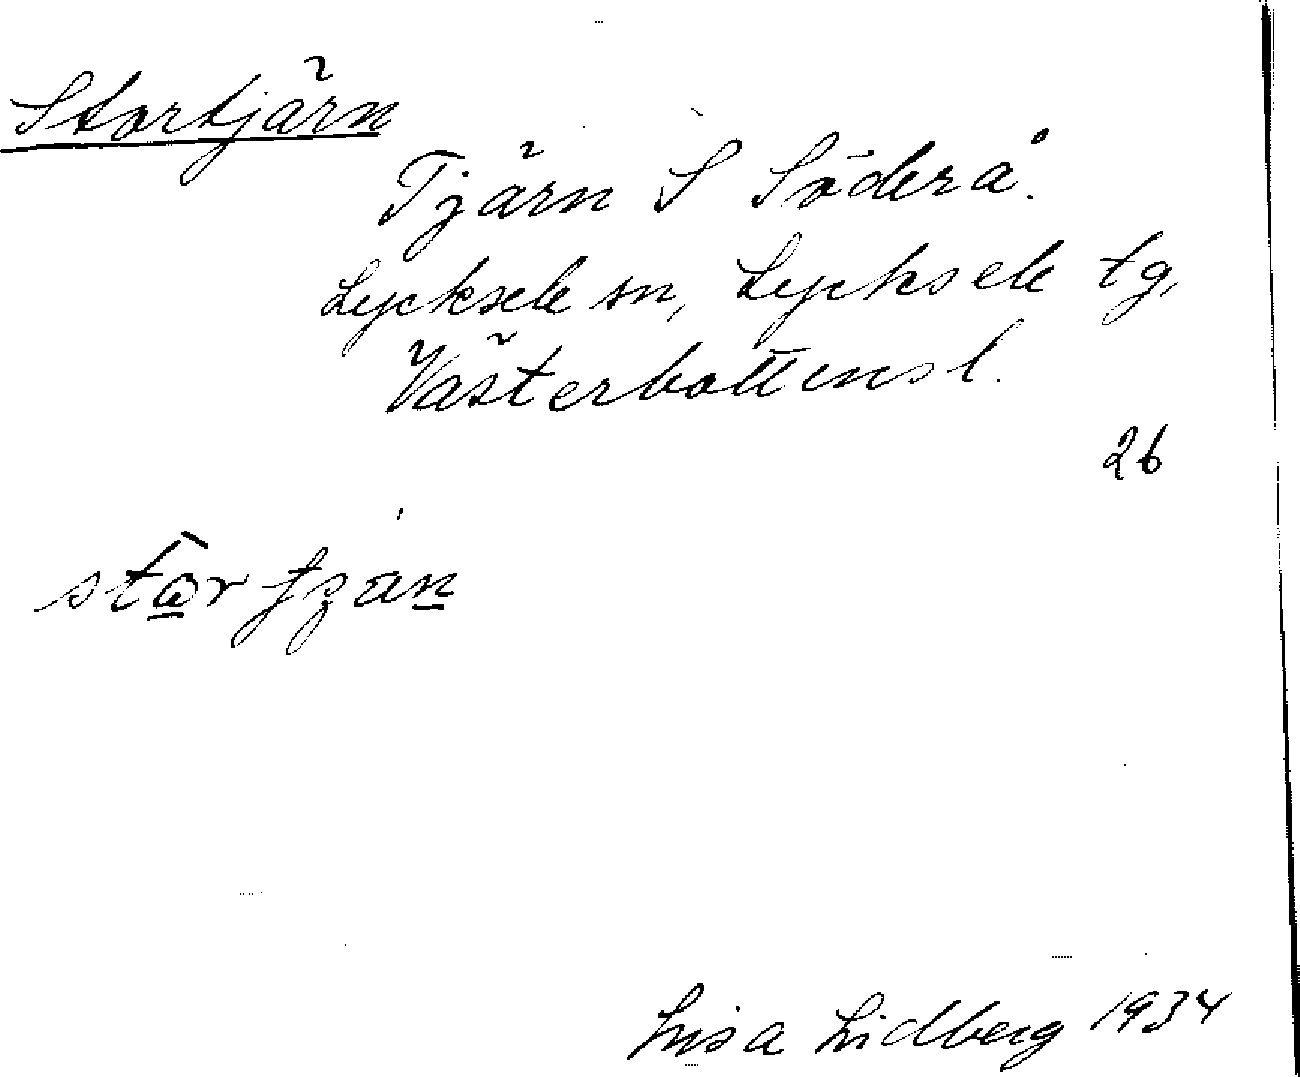 Stortjärn
Tjärn S Söderå.
Lycksele sn, Lycksele tg,
Västerbottensl.
26
Lisa Lidberg 1934